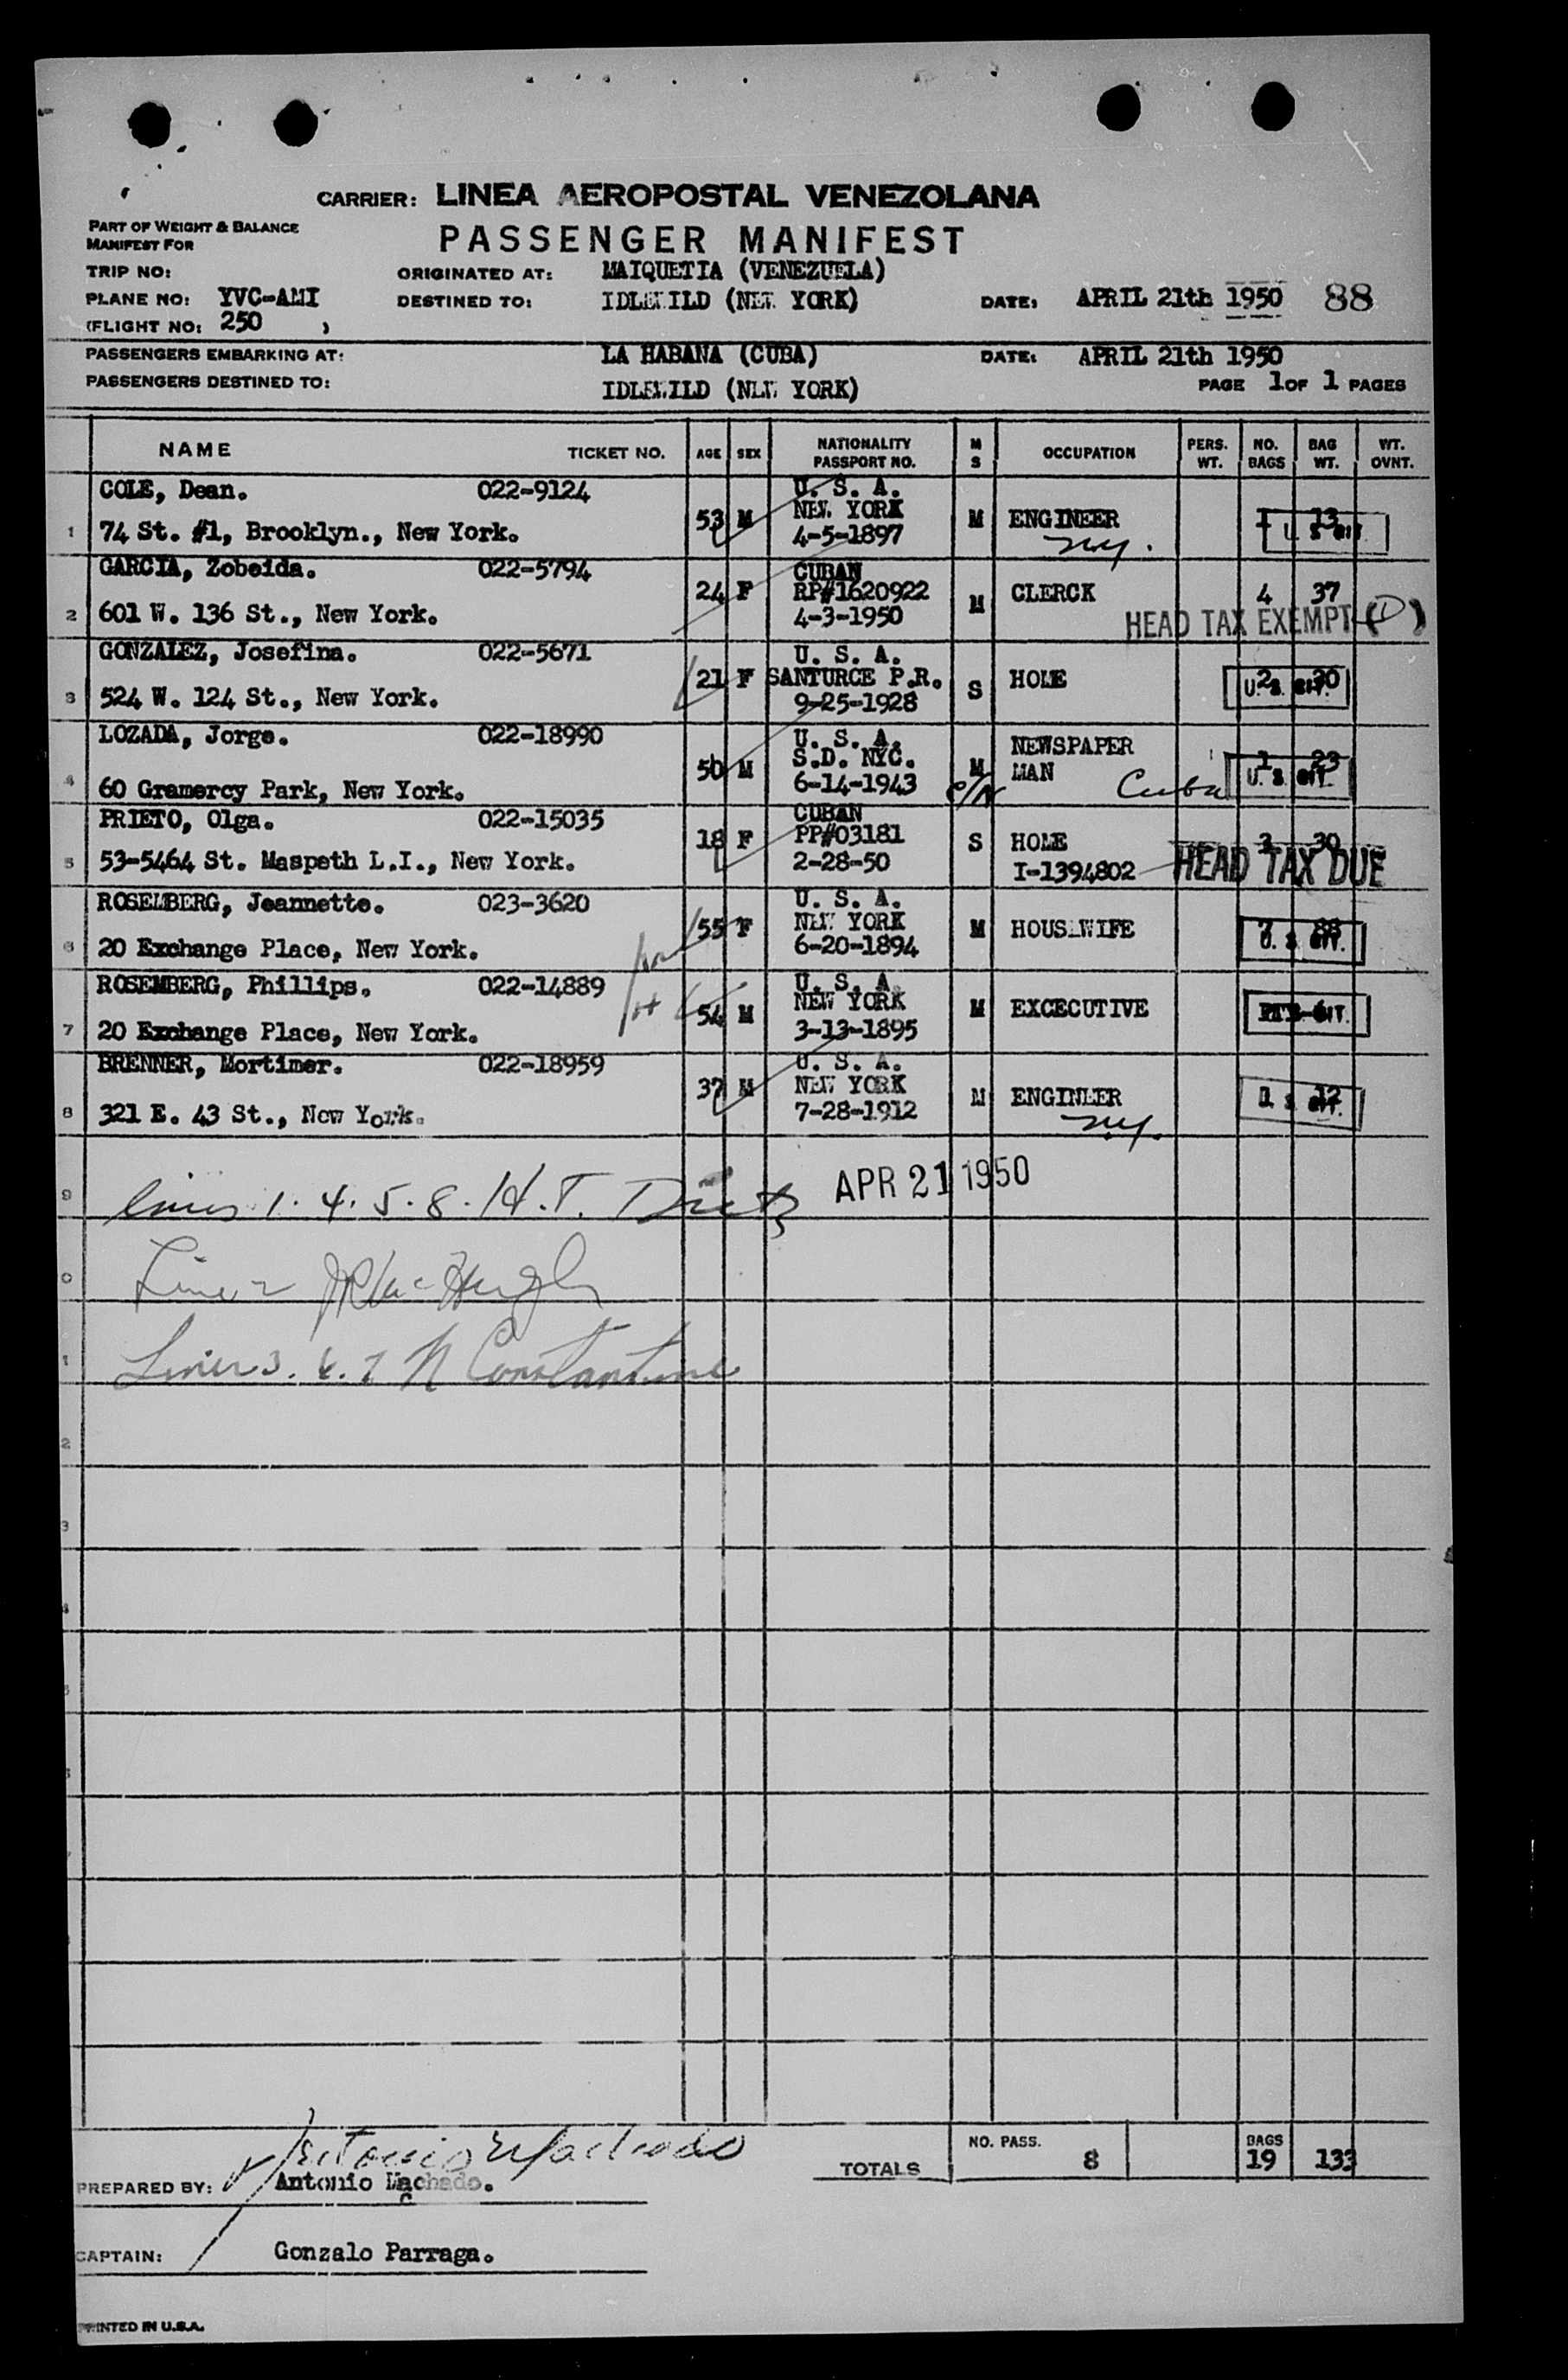 CARRIER: LINEA AEROPOSTAL VENEZOLANA
PART OF WEIGHT & BALANCE
MANIFEST FOR
PASSENGER MANIFEST
TRIP NO: ORIGINATED AT: MAIQUETIA (VENEZUELA)
PLANE NO: YVC-AMI DESTINED TO: IDLEWILD (NEW YORK) DATE: APRIL 21th 1950 88
(FLIGHT NO: 250 )
PASSENGERS EMBARKING AT: LA HABANA (CUBA) DATE: APRIL 21th 1950
PASSENGERS DESTINED TO: IDLEWILD (NEW YORK) PAGE 1 OF 1 PAGES
NAME TICKET NO. AGE SEX NATIONALITY PASSPORT NO. M S OCCUPATION PERS. WT. NO. BAGS BAG WT. WT. OVNT.
COLE, Dean. 022-9124 U. S. A.
1 53 M NEW YORK M ENGINEER 1 13
74 St. #1, Brooklyn., New York. 4-5-1897 N.Y. U S CIT.
GARCIA, Zobeida. 022-5794 CUBAN
24 F RP#1620922 M CLERCK 4 37
2 601 W. 136 St., New York. 4-3-1950 HEAD TAX EXEMPT (1)
GONZALEZ, Josefina. 022-5671 U. S. A.
21 F SANTURCE P.R. S HOME 2 30
3 524 W. 124 St., New York. 9-25-1928 U. S. CIT.
LOZADA, Jorge. 022-18990 U. S. A.
50 M S.D. NYC. M NEWSPAPER MAN 1 23
4 60 Gramercy Park, New York. 6-14-1943 C/N Cuba U. S. CIT.
PRIETO, Olga. 022-15035 CUBAN
18 F PP#03181 S HOME 3 30
5 53-5464 St. Maspeth L.I., New York. 2-28-50 I-1394802 HEAD TAX DUE
ROSEMBERG, Jeannette. 023-3620 U. S. A.
55 F NEW YORK M HOUSEWIFE 7 88
6 20 Exchange Place, New York. 6-20-1894 U. S. CIT.
ROSEMBERG, Phillips. 022-14889 U. S. A.
54 M NEW YORK M EXCECUTIVE CIT.
7 20 Exchange Place, New York. 3-13-1895
BRENNER, Mortimer. 022-18959 U. S. A.
37 M NEW YORK M ENGINEER 1 12
8 321 E. 43 St., New York. 7-28-1912 N.Y. U S CIT.
9 lines 1. 4. 5. 8. H.T. Dietz APR 21 1950
0 Line 2 McHugh
1 Lines 3. 6. 7 N Constantine
2
3
4
Antonio Machado
TOTALS NO. PASS. 8 BAGS 19 133
PREPARED BY: Antonio Machado.
CAPTAIN: Gonzalo Parraga.
PRINTED IN U.S.A.